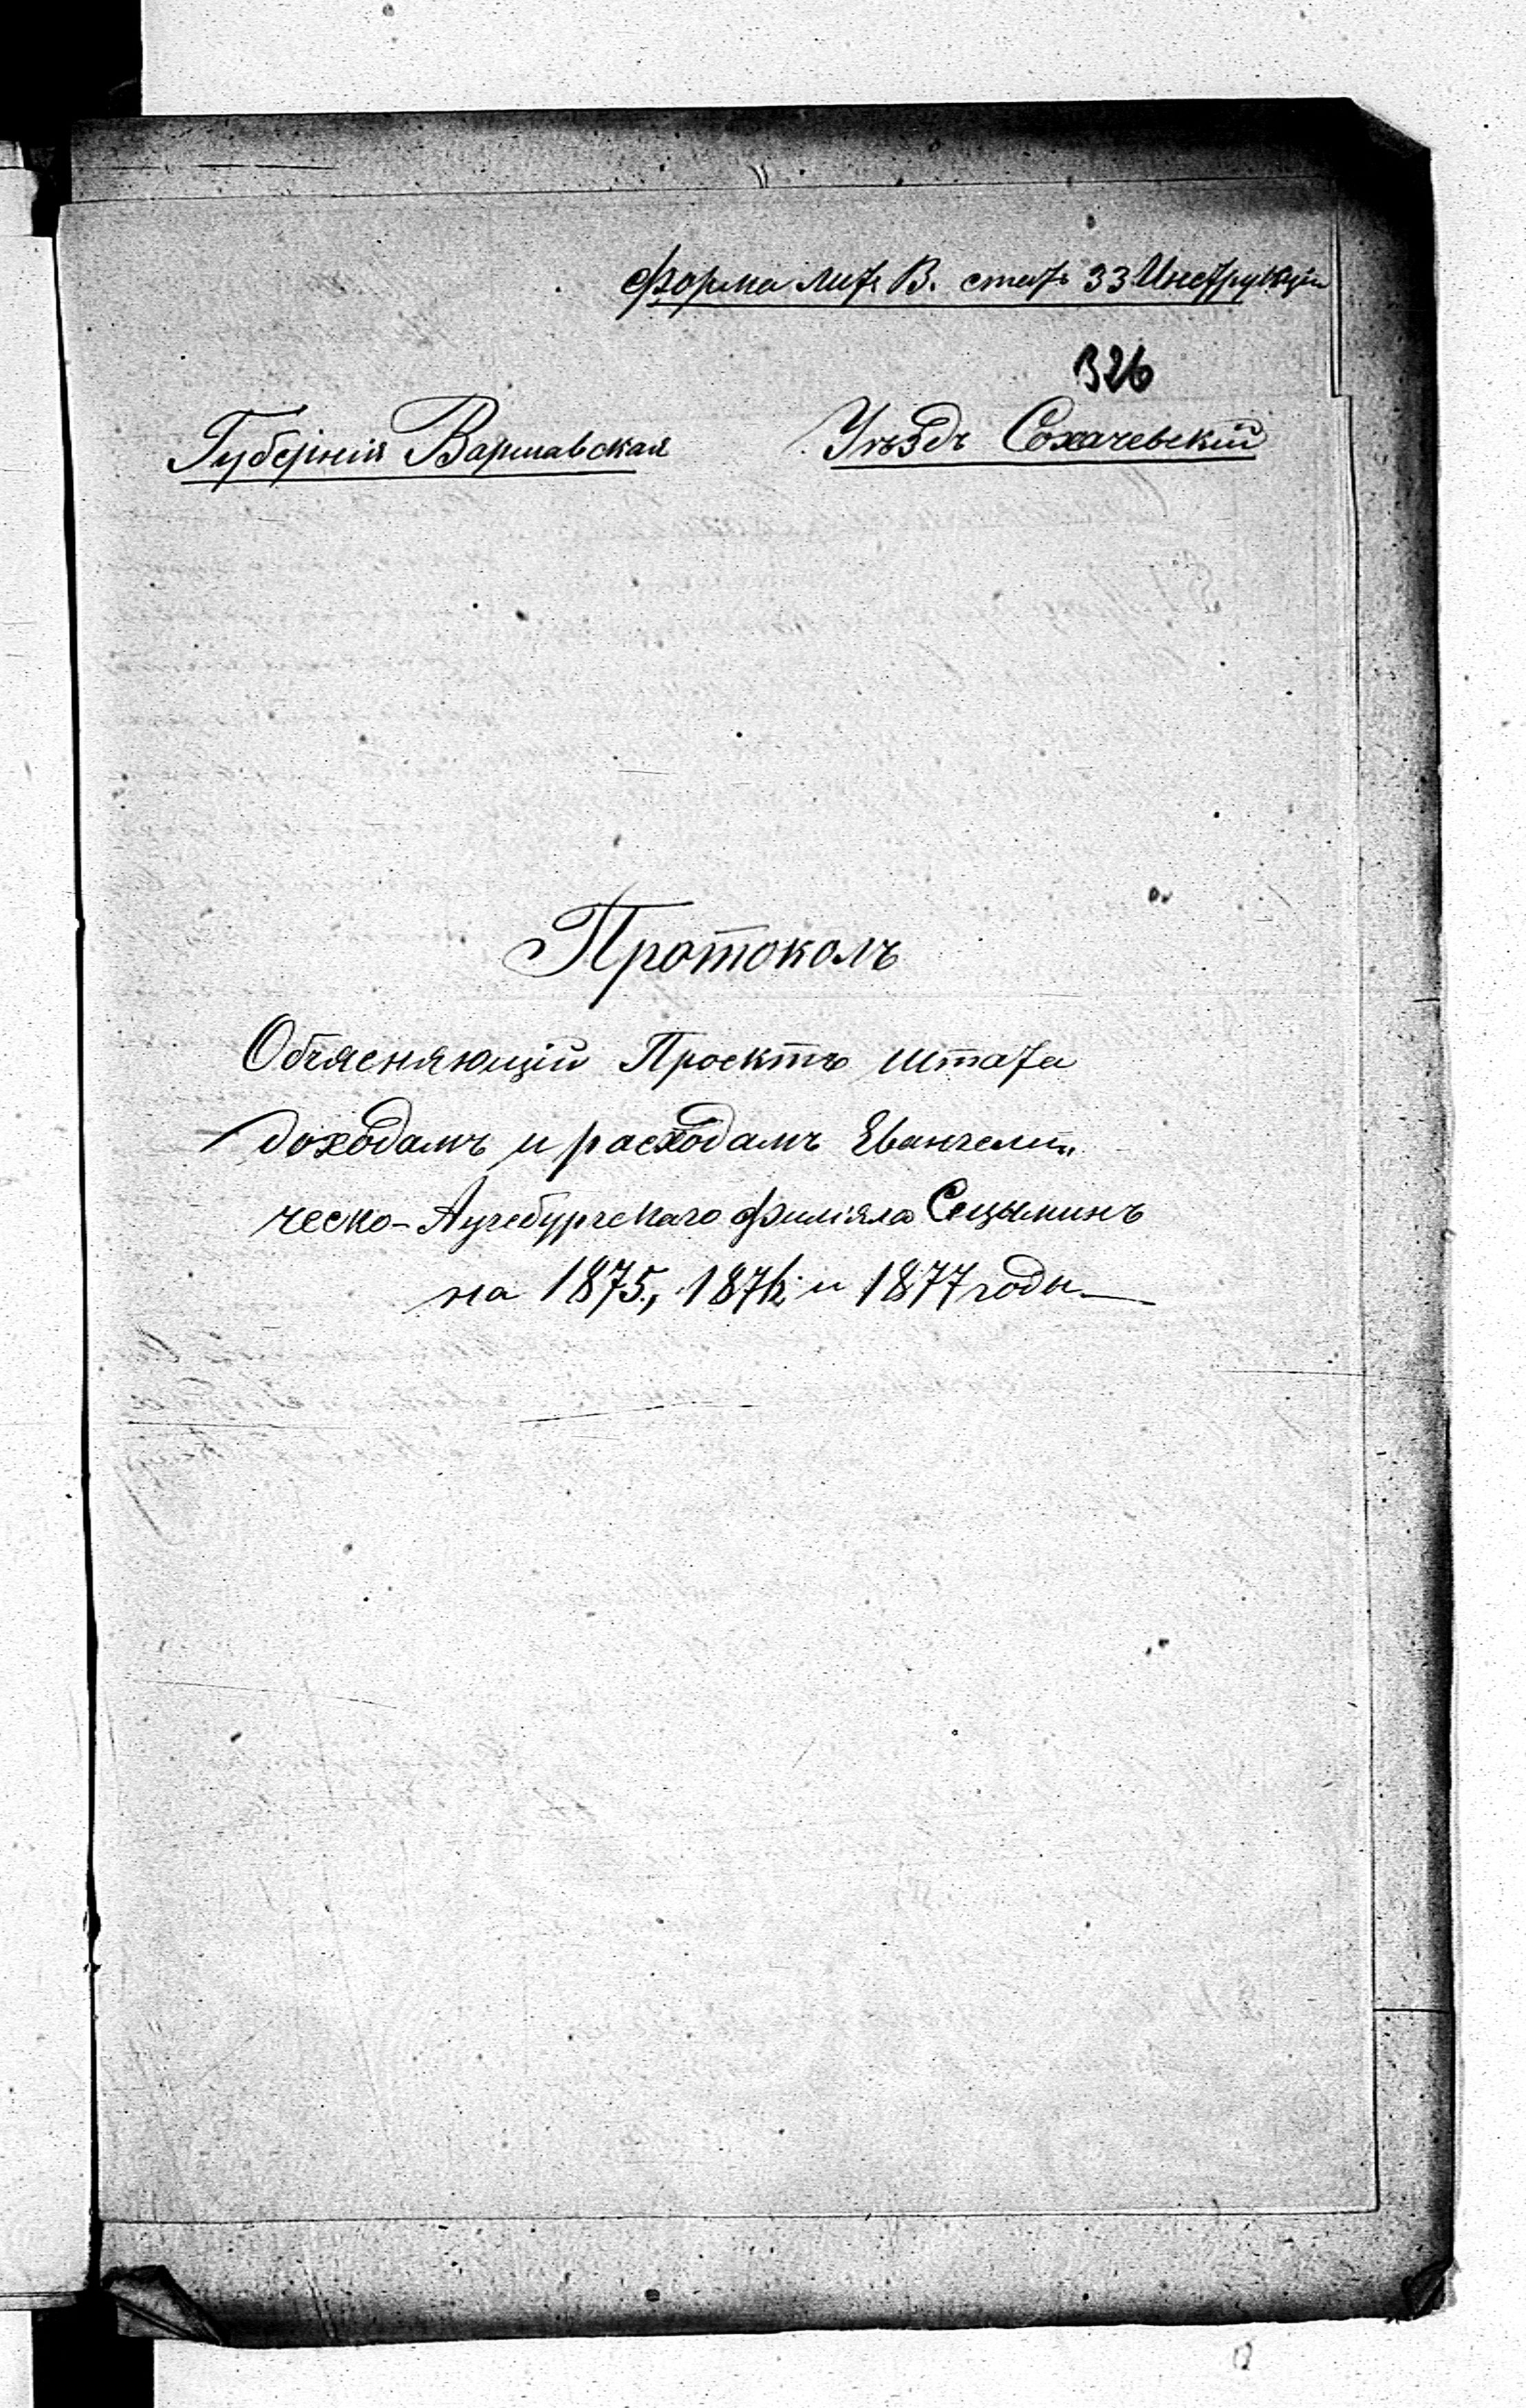 форма лит. В. стат. 33 Инструкціи
326
Губернія Варшавская Уѣздъ Сохачевскій
Протоколъ
Объясняющій Проектъ штата
доходамъ и расходамъ Евангели„
ческо-Аугсбургскаго филіяла Сецыминъ
на 1875, 1876 и 1877 годы